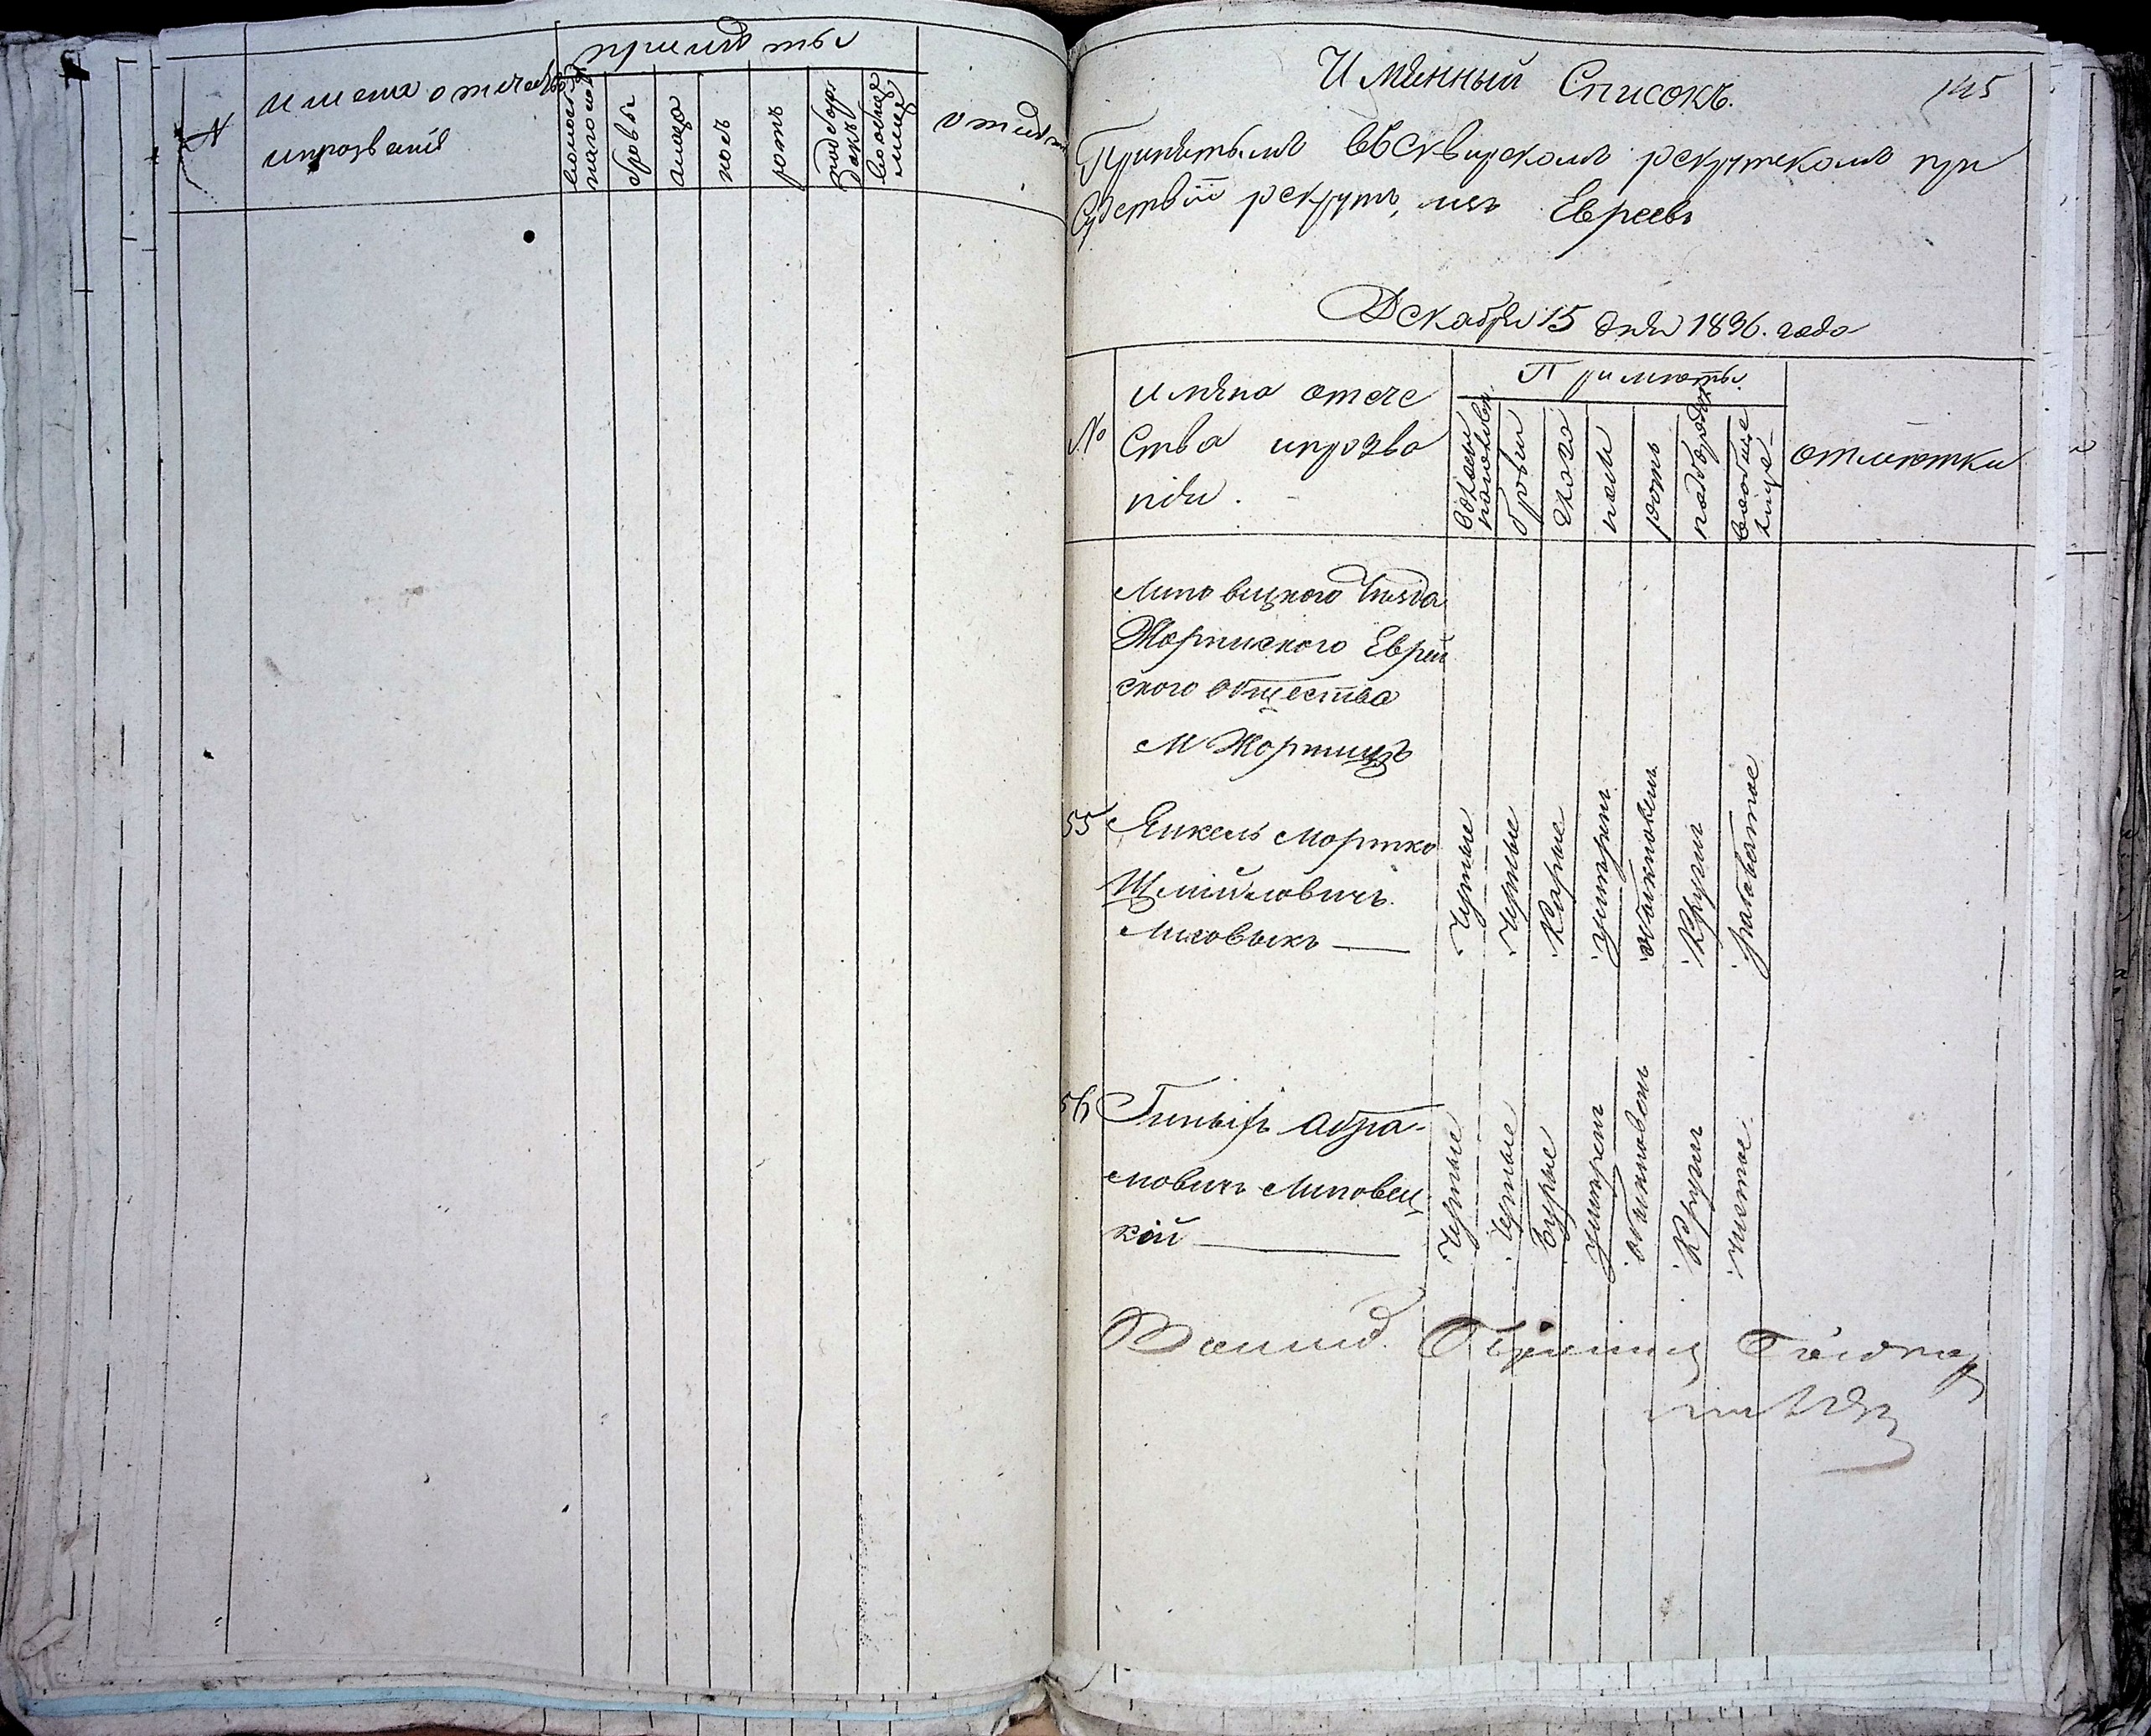 №
имена отечества
ипрозванія
приметы
волосы
на голове
бровы
глаза
носъ
ротъ
подборо
докъ
вообще
лице
Имянный Списокъ.
145
Принятымъ въСквирскомъ рекрутскомъ при
Судствіи рекрутъ изъ Евреевъ
Декабря 15 дня 1836. года
№
имяна отече
Ства ипрозва
нія.
Приметы.
волосы
наголове
брови
глаза
носъ
ротъ
подбородокъ
вообще
лице
отметки
Липовицкого Уезда
Жорниского Еврей
ского общества
М Жорнищъ
55 Янкель Мортко
Шмиловичъ
Лисовыкъ —
Черные
Черные
Карые
умеренъ
обыкновенъ
Круглъ
рабоватое
56 Абра-
мовичъ Липовец
кій —
Черные
Черные
Бурые
умеренъ
обыкновенъ
Круглъ
чистое.